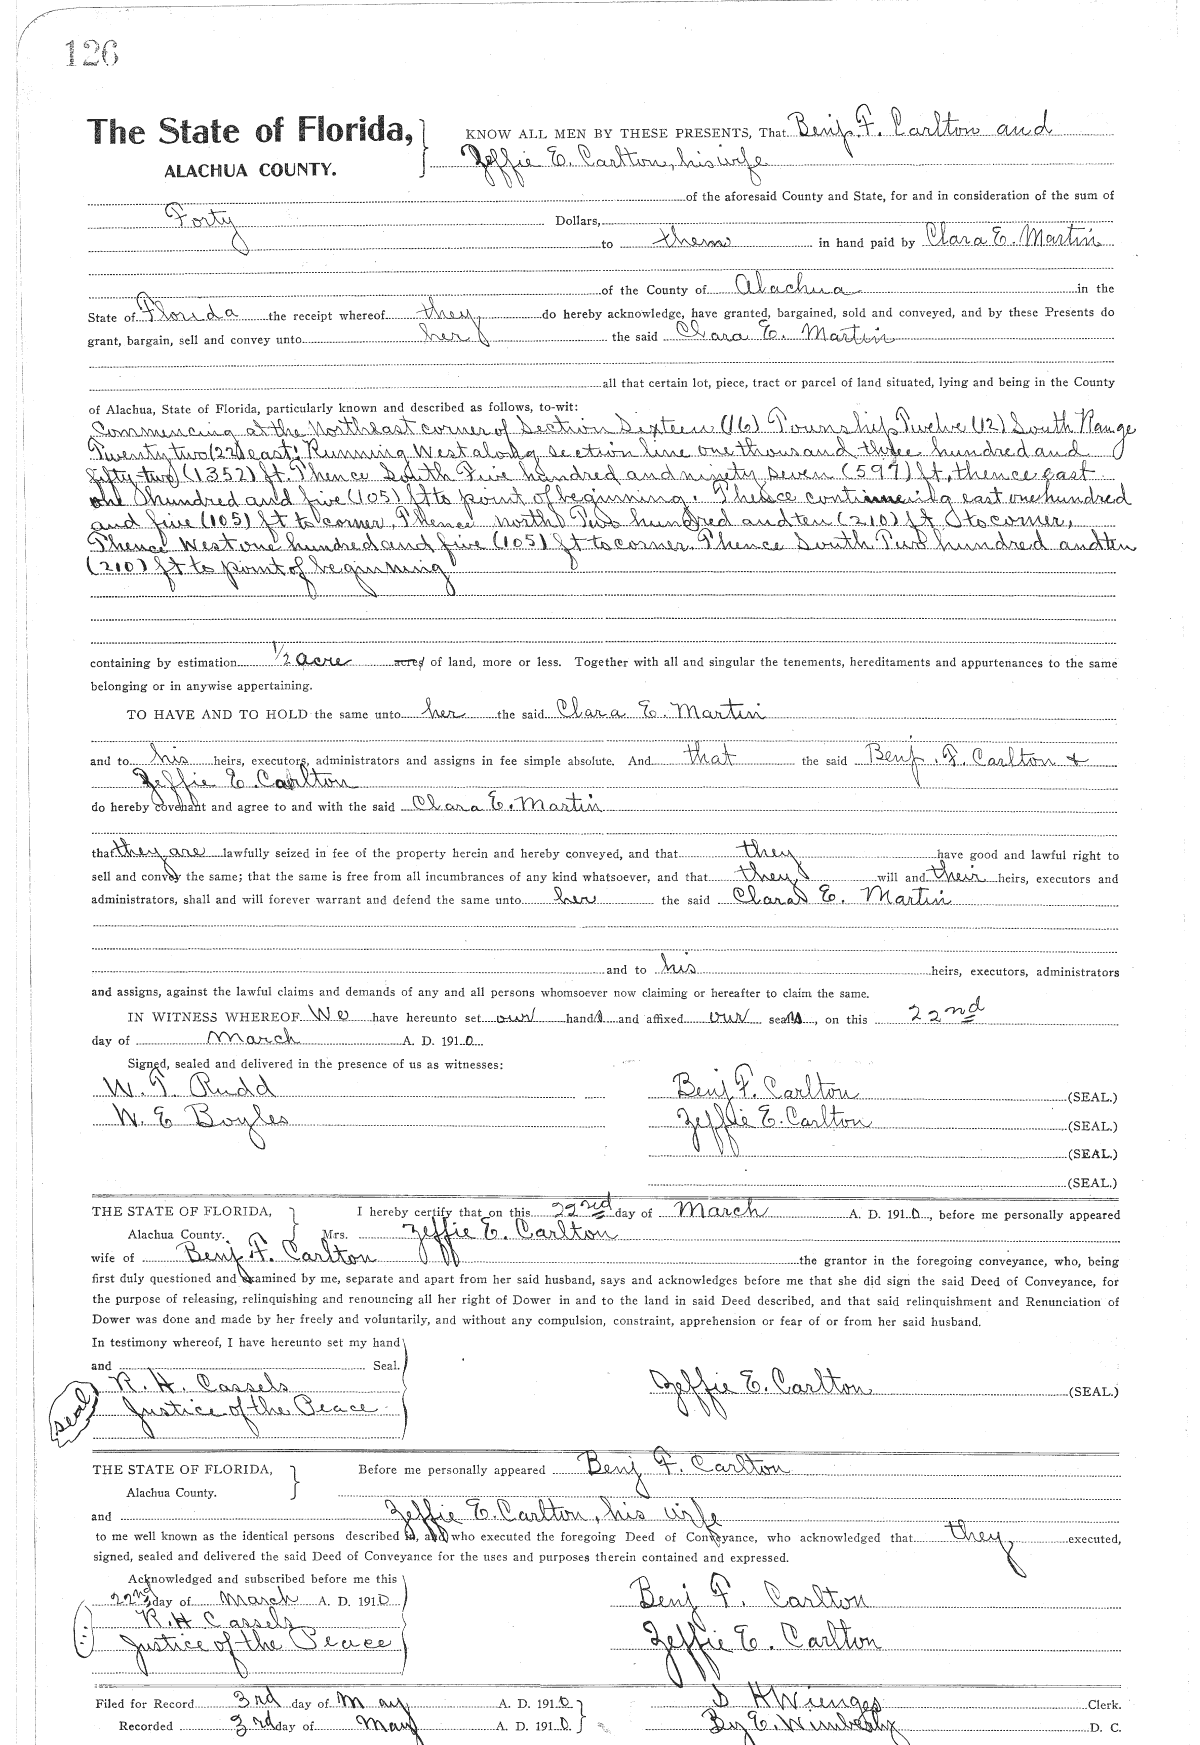 126
The State of Florida,
ALACHUA COUNTY.
KNOW ALL MEN BY THESE PRESENTS, That Benj. F. Carlton and
Zeffie E. Carlton, his wife
of the aforesaid County and State, for and in consideration of the sum of
Forty Dollars,
to them in hand paid by Clara E. Martin
of the County of Alachua in the
State of Florida the receipt whereof they do hereby acknowledge, have granted, bargained, sold and conveyed, and by these Presents do
grant, bargain, sell and convey unto her the said Clara E. Martin
all that certain lot, piece, tract or parcel of land situated, lying and being in the County
of Alachua, State of Florida, particularly known and described as follows, to-wit:
Commencing at the Northeast corner of Section Sixteen (16) Township Twelve (12) South Range
Twenty two (22) east; Running West along section line one thousand three hundred and
fifty-two (1352) ft. Thence South Five hundred and ninety seven (597) ft, thence east
one hundred and five (105) ft to point of beginning. Thence continueing east one hundred
and five (105) ft to corner, Thence north Two hundred and ten (210) ft to corner,
Thence West one hundred and five (105) ft to corner. Thence South Two hundred and ten
(210) ft to point of beginning
containing by estimation 1/2 acre acres of land, more or less. Together with all and singular the tenements, hereditaments and appurtenances to the same
belonging or in anywise appertaining.
TO HAVE AND TO HOLD the same unto her the said Clara E. Martin
and to his heirs, executors, administrators and assigns in fee simple absolute. And that the said Benj. F. Carlton &
Zeffie E. Carlton
do hereby covenant and agree to and with the said Clara E. Martin
that they are lawfully seized in fee of the property herein and hereby conveyed, and that they have good and lawful right to
sell and convey the same; that the same is free from all incumbrances of any kind whatsoever, and that they will and their heirs, executors and
administrators, shall and will forever warrant and defend the same unto her the said Clara E. Martin
and to his heirs, executors, administrators
and assigns, against the lawful claims and demands of any and all persons whomsoever now claiming or hereafter to claim the same.
IN WITNESS WHEREOF We have hereunto set our hands and affixed our seals, on this 22nd
day of March A. D. 1910.
Signed, sealed and delivered in the presence of us as witnesses:
W. T. Rudd Benj F. Carlton (SEAL.)
W. E Boyles Zeffie E. Carlton (SEAL.)
(SEAL.)
(SEAL.)
THE STATE OF FLORIDA, I hereby certify that on this 22nd day of March A. D. 1910, before me personally appeared
Alachua County. Mrs. Zeffie E. Carlton
wife of Benj F. Carlton the grantor in the foregoing conveyance, who, being
first duly questioned and examined by me, separate and apart from her said husband, says and acknowledges before me that she did sign the said Deed of Conveyance, for
the purpose of releasing, relinquishing and renouncing all her right of Dower in and to the land in said Deed described, and that said relinquishment and Renunciation of
Dower was done and made by her freely and voluntarily, and without any compulsion, constraint, apprehension or fear of or from her said husband.
In testimony whereof, I have hereunto set my hand
and Seal.
R. H. Cassels Zeffie E. Carlton (SEAL.)
seal Justice of the Peace
THE STATE OF FLORIDA, Before me personally appeared Benj F. Carlton
Alachua County.
and Zeffie E. Carlton, his wife
to me well known as the identical persons described in, and who executed the foregoing Deed of Conveyance, who acknowledged that they executed,
signed, sealed and delivered the said Deed of Conveyance for the uses and purposes therein contained and expressed.
Acknowledged and subscribed before me this
22nd day of March A. D. 1910 Benj F. Carlton
R. H Cassels
Justice of the Peace Zeffie E. Carlton
Filed for Record 3rd day of May A. D. 1910 S H Wienges Clerk.
Recorded 3rd day of May A. D. 1910. By E. Wimberly D. C.